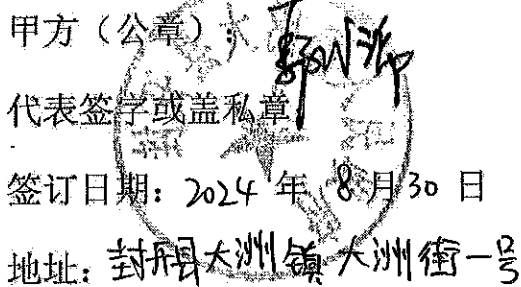 甲方（公章）：
代表签字或盖私章
签订日期：2024 年 8月30 日
地址：封开县大洲镇大洲街一号